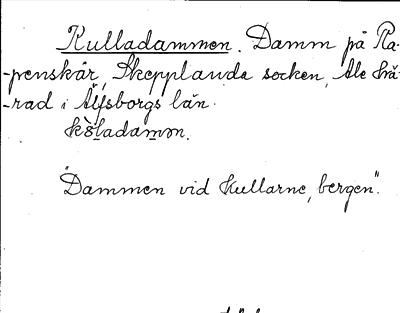 Kulladammen. Damm på Ra-
-penskär, Skepplanda socken, Ale hä-
-rad i Älfsborgs län.
kòladamm.
"Dammen vid kullarne, bergen".